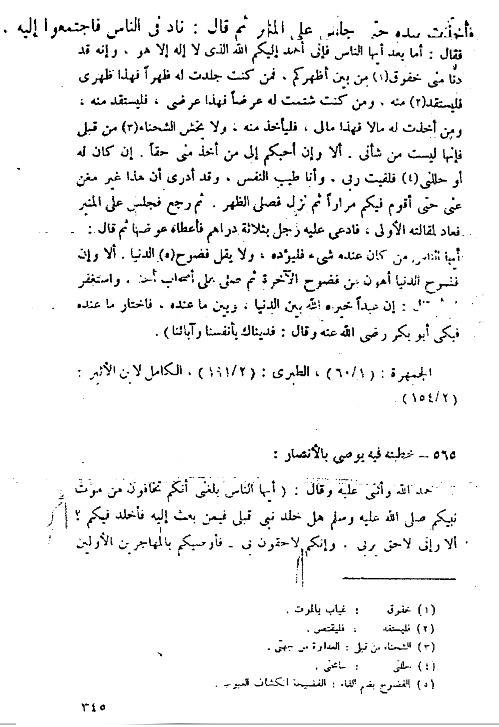 فأخذت بيده حتى جلس على المنبر ثم قال : ناد في الناس فاجتمعوا إليه .
فقال : أما بعد أيها الناس فإني أحمد إليكم الله الذي لا إله إلا هو . وإنه قد
دنا مني خفوق(١) من بين أظهركم . فمن كنت جلدت له ظهراً فهذا ظهري
فليستقد(٢) منه . ومن كنت شتمت له عرضاً فهذا عرضي ، فليستقد منه ،
ومن أخذت له مالا فهذا مالي ، فليأخذ منه ، ولا يخش الشحناء(٣) من قبلي
فإنها ليست من شأني . ألا وإن أحبكم إلي من أخذ مني حقاً . إن كان له
أو حللني(٤) فلقيت ربي . وأنا طيب النفس . وقد أدرى أن هذا غير مغن
عني حتى أقوم فيكم مراراً ثم نزل فصلى الظهر . ثم رجع فجلس على المنبر
فعاد لمقالته الأولى ، فادعى عليه رجل بثلاثة دراهم فأعطاه عوضها ثم قال :
أيها الناس من كان عنده شيء فليؤده . ولا يقل فضوح(٥) الدنيا . ألا وإن
فضوح الدنيا أهون من فضوح الآخرة ثم صلى على أصحاب أحد . واستغفر
قال : إن عبداً خيره الله بين الدنيا ، وبين ما عنده . فاختار ما عنده
فبكى أبو بكر رضى الله عنه وقال : فديناك بأنفسنا وآبائنا ) .
الجمهرة : (٦٠/١) ، الطبرى : (١٩١/٢) ، الكامل لابن الأثير :
(١٥٤/٢) .
٥٦٥ – خطبته فيه يوصي بالأنصار :
حمد الله وأثنى عليه وقال : ( أيها الناس بلغني أنكم تخافون من موت
نبيكم صلى الله عليه وسلم هل خلد نبي قبلي فيمن بعث إليه فأخلد فيكم ؟
ألا وإني لاحق بربي . وإنكم لاحقون بي – فأوصيكم بالمهاجرين الأولين
(١) خفوق : غياب بالموت .
(٢) فليستقد : فليقتص .
(٣) الشحناء من قبلي : العداوة من جهتي .
(٤) حللني : سامحني .
(٥) الفضوح بضم الفاء : الفضيحة انكشاف العيوب .
٣٤٥